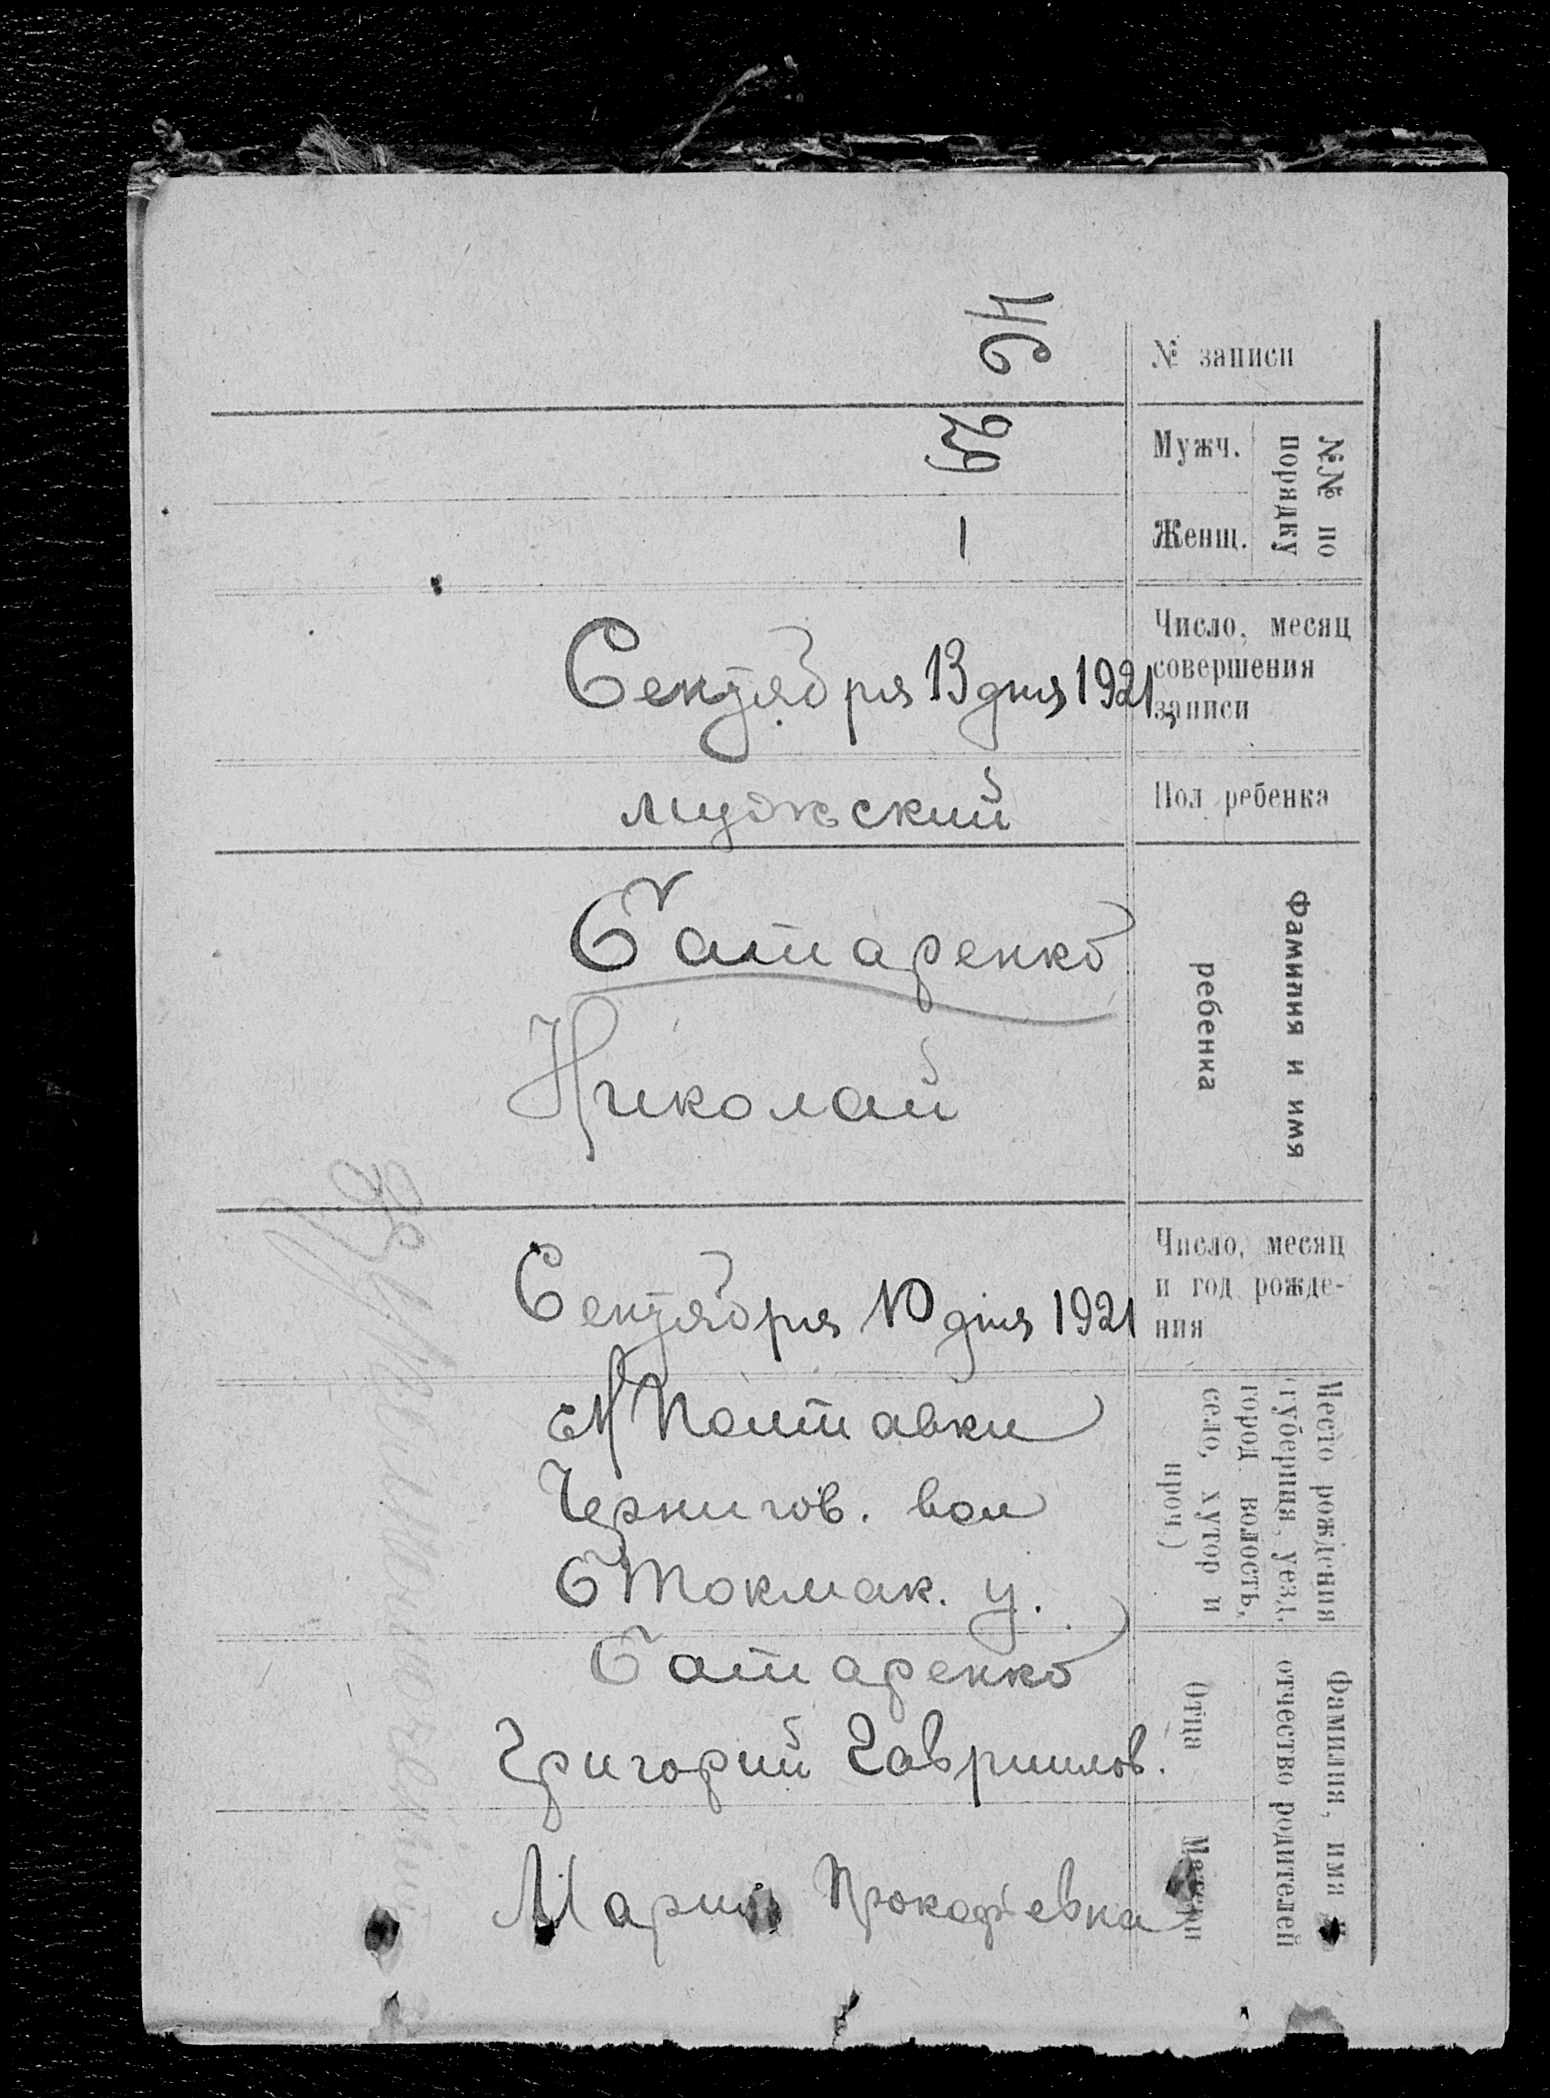 № записи
46
№№ по порядку
Мужч.
29
Женщ.
—
Число, месяц
совершения
записи
Сентября 13 дня 1921
Пол ребенка
мужской
Фамилия и имя
ребенка
Татаренко
Николай
Число, месяц
и год рожде-
ния
Сентября 10 дня 1921
Место рождения
(губерния, уезд,
город волость,
село, хутор и
проч.)
Полтавки
Чернигов. вол
Токмак. у.
Фамилия, имя и
отчество родителей
Отца
Татаренко
Григорий Гавриилов.
Матери
Мария Прокофіевна